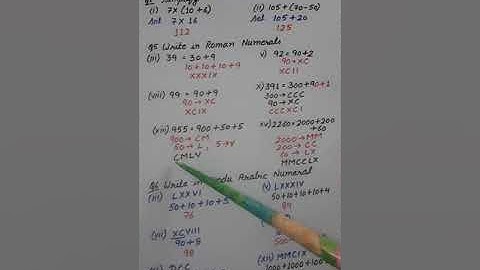 (i) 7×(10+6) (ii) 105+(70-50)
Sol 7×16 Sol 105+20
112 125
Q5 Write in Roman Numerals
(iii) 39 = 30+9 v) 92=90+2
10+10+10+9 90→XC
XXXIX XCII
(viii) 99 = 90+9 x) 391=300+90+1
90→XC 300→CCC
XCIX 90→XC
CCCXCI
(xiii) 955 = 900+50+5 xv) 2260=2000+200
+60
900→CM 2000→MM
50→L, 5→V 200→CC
CMLV 60→LX
MMCCLX
Q6 Write in Arabic Numeral
(iii) LXXVI (v) LXXXIV
50+10+10+5 50+10+10+10+4
76
(vii) XCVIII
90+8
98 (xii) MMCIX